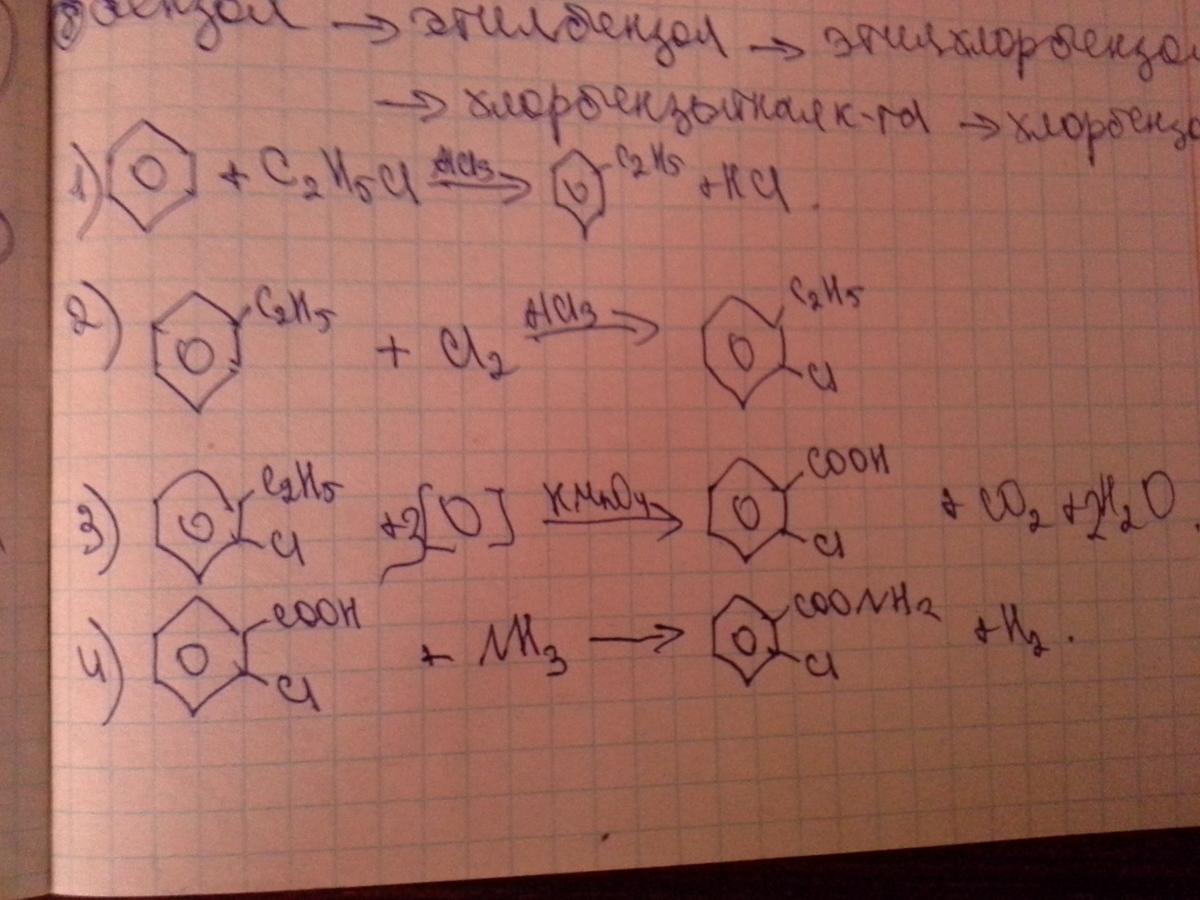 бензол → этилбензол → этилхлорбензол
→ хлорбензойная к-та → хлорбензо
1) + C₂H₅Cl AlCl₃ → C₂H₅ + HCl.
2) C₂H₅ + Cl₂ AlCl₃ → C₂H₅ Cl
3) C₂H₅ Cl + 3[O] KMnO₄ → COOH Cl + CO₂ + 2H₂O
4) COOH Cl + NH₃ → COONH₂ Cl + H₂.